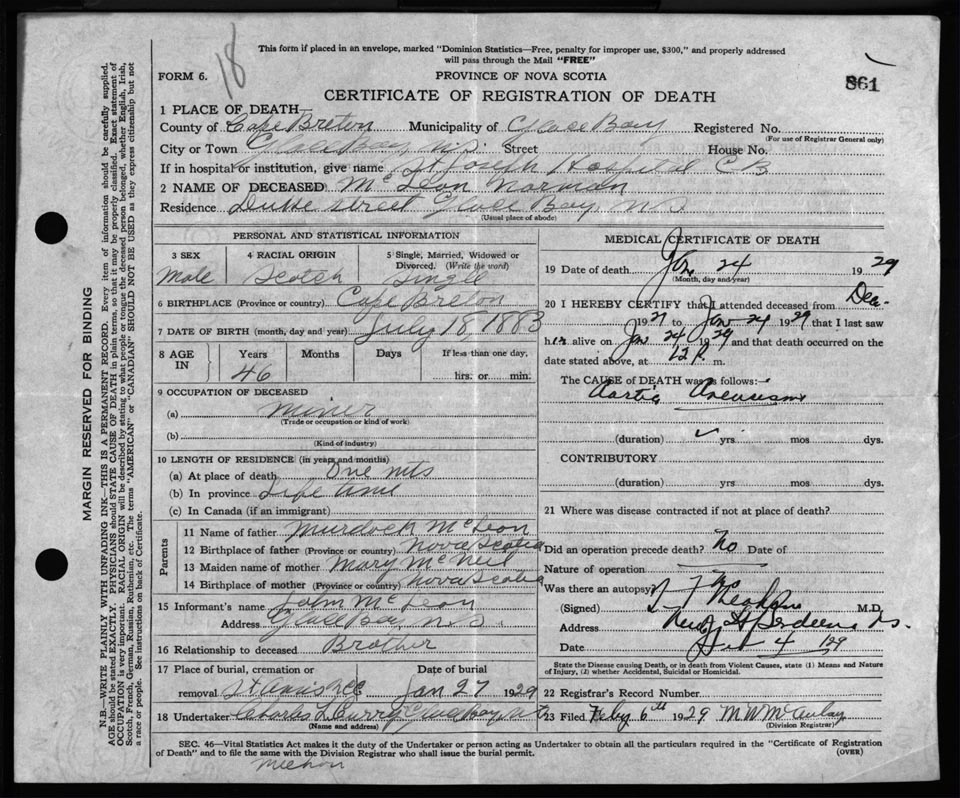 18
This form if placed in an envelope, marked "Dominion Statistics—Free, penalty for improper use, $300," and properly addressed
will pass through the Mail "FREE"
FORM 6.
PROVINCE OF NOVA SCOTIA
861
CERTIFICATE OF REGISTRATION OF DEATH
1 PLACE OF DEATH—
County of Cape Breton Municipality of Glace Bay Registered No.
(For use of Registrar General only)
City or Town Glace Bay N.S. Street House No.
If in hospital or institution, give name St Joseph Hospital CB
2 NAME OF DECEASED McLeon Norman
Residence street Glace Bay N S
(Usual place of abode)
PERSONAL AND STATISTICAL INFORMATION
3 SEX 4 RACIAL ORIGIN 5 Single, Married, Widowed or Divorced. (Write the word)
Male Scotch Single
6 BIRTHPLACE (Province or country) Cape Breton
7 DATE OF BIRTH (month, day and year) July 18, 1883
8 AGE IN Years Months Days If less than one day,
46 hrs. or min.
9 OCCUPATION OF DECEASED
(a) Miner
(Trade or occupation or kind of work)
(b)
(Kind of industry)
10 LENGTH OF RESIDENCE (in years and months)
(a) At place of death One mts
(b) In province Life time
(c) In Canada (if an immigrant)
Parents
11 Name of father Murdock McLeon
12 Birthplace of father (Province or country) Nova Scotia
13 Maiden name of mother Mary McNeil
14 Birthplace of mother (Province or country) Nova Scotia
15 Informant's name John McLeon
Address Glace Bay, N.S.
16 Relationship to deceased Brother
17 Place of burial, cremation or Date of burial
removal Jan 27 1929
18 Undertaker Charles L Curry Glace Bay N S
(Name and address)
MEDICAL CERTIFICATE OF DEATH
19 Date of death Jan 24 1929
(Month, day and year)
20 I HEREBY CERTIFY that I attended deceased from Dea-
19 to Jan 24 1929 that I last saw
h alive on Jan 24 1929 and that death occurred on
date stated above, at 12 P. m.
The CAUSE of DEATH was as follows:
Aortic Aneurism
(duration) yrs. mos dys.
CONTRIBUTORY
(duration) yrs. mos. dys.
21 Where was disease contracted if not at place of death?
Did an operation precede death? No Date of
Nature of operation
Was there an autopsy? No
(Signed) M.D.
Address New Aberdeen N S.
Date 4 29
State the Disease causing Death, or in death from Violent Causes, state (1) Means and Nature
of Injury, (2) whether Accidental, Suicidal or Homicidal.
22 Registrar's Record Number
23 Filed Feby 6th 1929 M W McAulay
(Division Registrar)
SEC. 46—Vital Statistics Act makes it the duty of the Undertaker or person acting as Undertaker to obtain all the particulars required in the "Certificate of Registration
of Death" and to file the same with the Division Registrar who shall issue the burial permit.
(OVER)
MARGIN RESERVED FOR BINDING
N.B.—WRITE PLAINLY WITH UNFADING INK—THIS IS A PERMANENT RECORD. Every item of information should be carefully supplied.
AGE should be stated EXACTLY. PHYSICIANS should STATE CAUSE OF DEATH in plain terms, so that it may be properly classified. Exact statement of
OCCUPATION is very important. RACIAL ORIGIN will be described by stating to what people or tongue the deceased person belonged, whether English, Irish,
Scotch, French, German, Russian, Ruthenian, etc. The terms "AMERICAN" or "CANADIAN" SHOULD NOT BE USED as they express citizenship but not
a race or people. See instructions on back of Certificate.